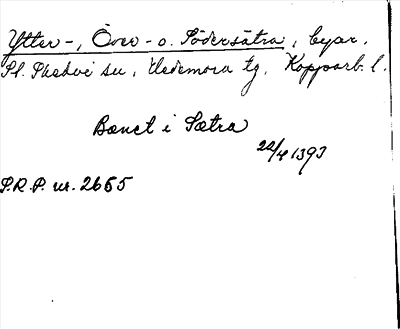 Ytter-, Över- o. Södersätra, byar.
St. Skedvi sn, Hedemora tg, Kopparb. l.
Bænct i Sætra
22/4 1393
S.R.P. nr. 2665